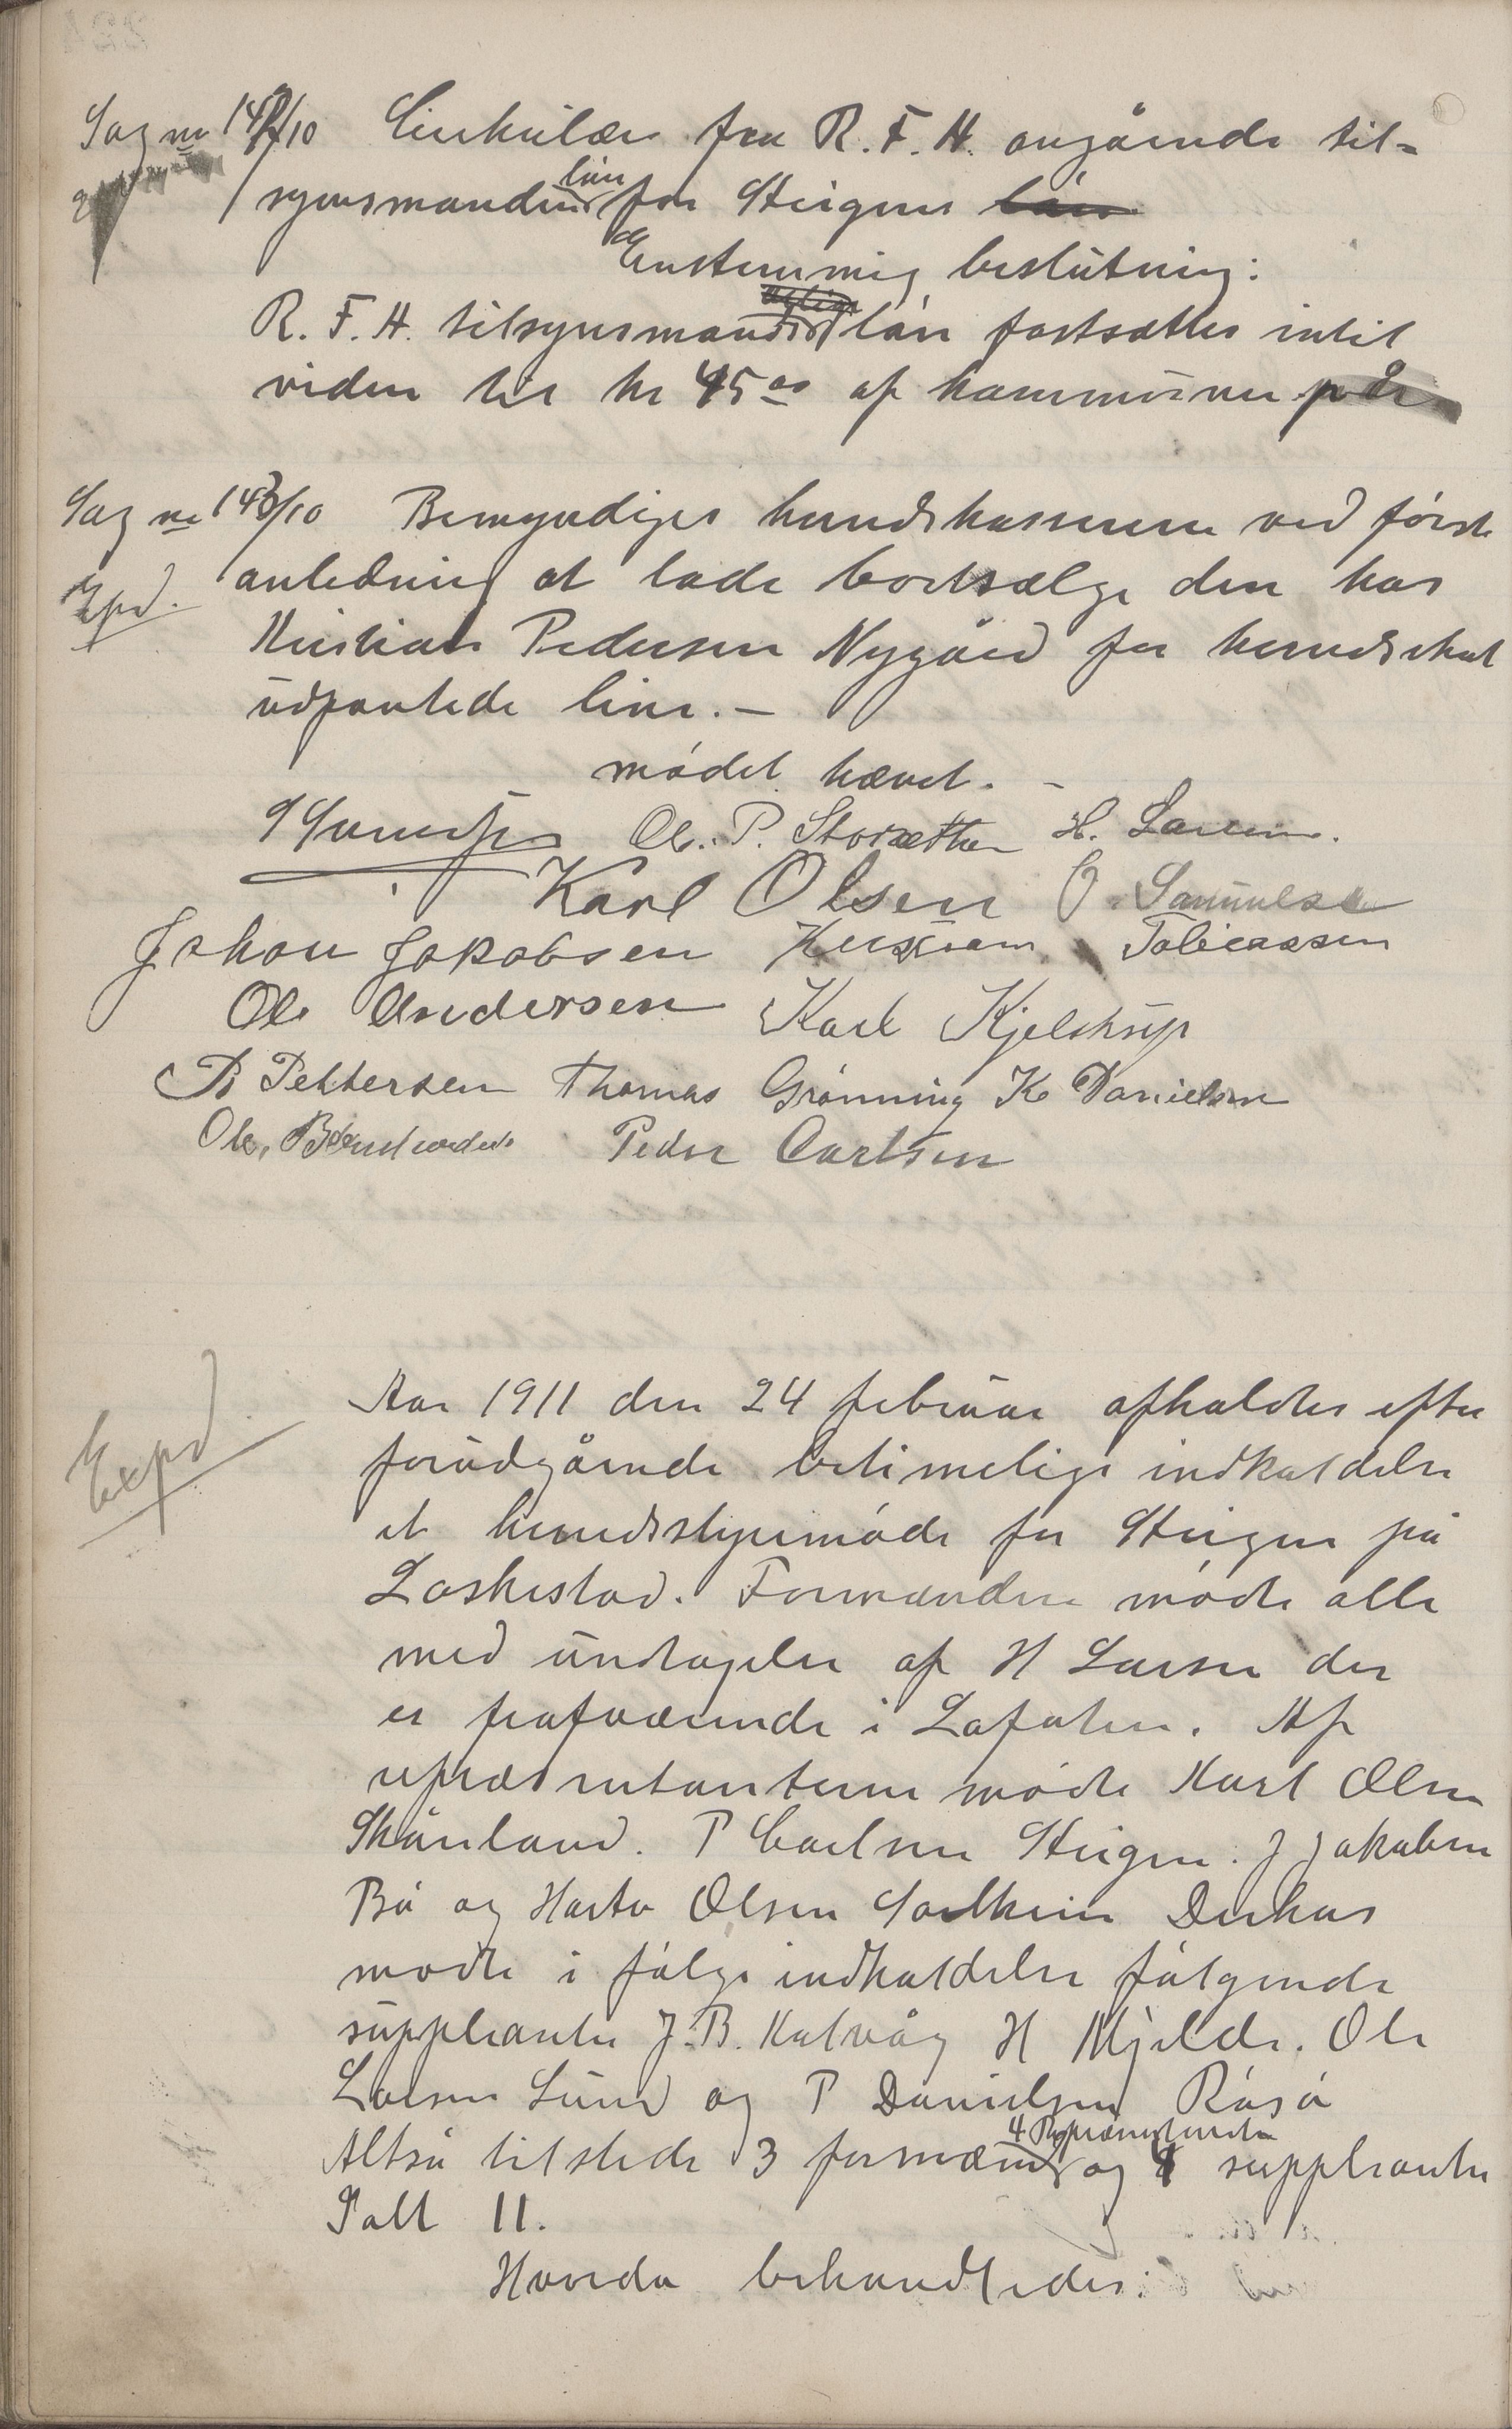 Sag nr 142/10 Cirkulære fra R. F. H. angående til-
synsmandens løn for Steigens løn
Enstemmig beslutning:
R. F. H. tilsynsmands løn fastsættes intil
viden til kr 45 00 af kommunen
Sag nr 143/10 Bemyndiges herredskasseren ved første
Expd. anledning at lade bortsælge den hos
Kristian Pedersen Nygård for herredsskat
udpantede line. –
mødet hævet. –
Ole P. Storsæther H. Larsen.
Karl Olsen O. Samuelsen
Johan Jakobsen Kristian Tobiassen
Ole Andersen Karl Kjelstrup
B Pettersen Thomas Grønning K Danielsen
Ole Peder Carlsen
Expd
Aar 1911 den 24 februar afholdtes efter
forudgående betimelige indkaldelse
et herredsstyremøde for Steigen på
Laskestad. Formændene mødte alle
med undtagelse af H Larsen der
er fraværende i Lofoten. Af
repræsentanterne mødte Karl Olsen
Skånland. P Carlsen Steigen. J Jakobsen
Bø og Hartv Olsen Desuden
mødte i følge indkaldelse følgende
suppleanter J. B. Kalvåg H Mjelde. Ole
Larsen Lund og P Danielsen Røsø
Altså tilstede 3 formænd 4 Repræsentanter og 4 suppleanter
Ialt 11.
Hvorda behandledes: